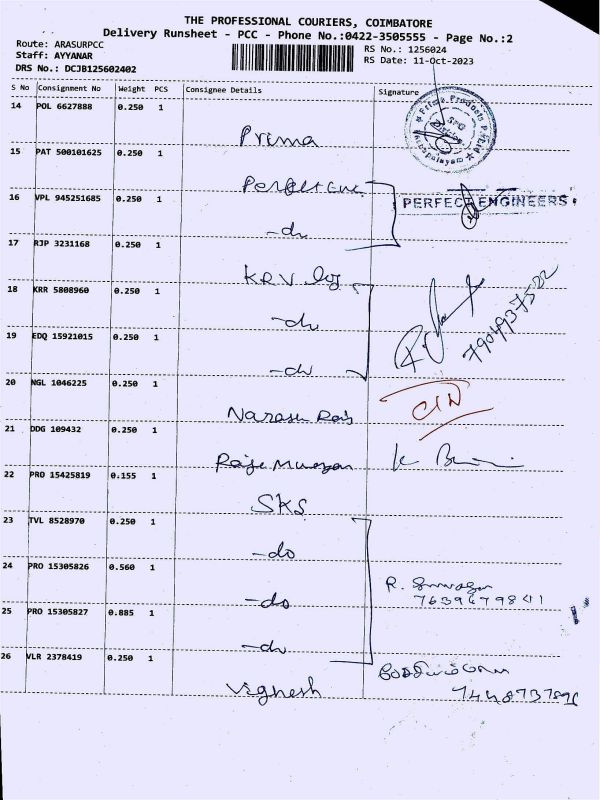 THE PROFESSIONAL COURIERS, COIMBATORE
Delivery Runsheet - PCC - Phone No.:0422-3505555 - Page No.:2
Route: ARASURPCC
RS No.: 1256024
Staff: AYYANAR
RS Date: 11-Oct-2023
DRS No.: DCJB125602402
S No Consignment No Weight PCS Consignee Details Signature
14 POL 6627888 0.250 1
Prima
15 PAT 500101625 0.250 1
Perfect Eng
16 VPL 945251685 0.250 1
PERFECT ENGINEERS
-do
17 RJP 3231168 0.250 1
KRV
18 KRR 5808960 0.250 1
-do
7904937522
19 EDQ 15921015 0.250 1
-do
20 NGL 1046225 0.250 1
21 DDG 109432 0.250 1
Raje Murugan
22 PRO 15425819 0.155 1
SKS
23 TVL 8528970 0.250 1
-do
24 PRO 15305826 0.560 1
-do
7639679841
25 PRO 15305827 0.885 1
-do
26 VLR 2378419 0.250 1
Vignesh